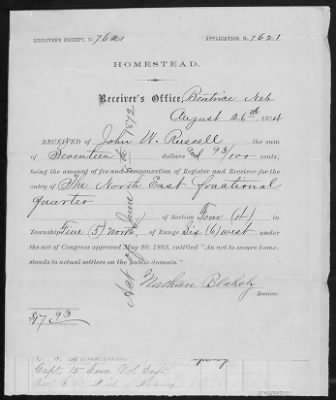 RECEIVER'S RECEIPT, No. 7621 APPLICATION, No. 7621
HOMESTEAD.
Receiver's Office, Beatrice Neb
August 26th 1874
RECEIVED of John W. Russell the sum
of Seventeen dollars and 93/100 cents,
being the amount of fee and compensation of Register and Receiver for the
entry of The North East fractional
quarter
of Section Four (4) in
Township Five (5) North, of Range Six (6) West, under
the act of Congress approved May 20, 1862, entitled "An act to secure homesteads to actual settlers on the public domain."
Nathan Blakely
Receiver.
$17.93
Act of June 8th 1872
Capt 15 Iowa Vol Inft